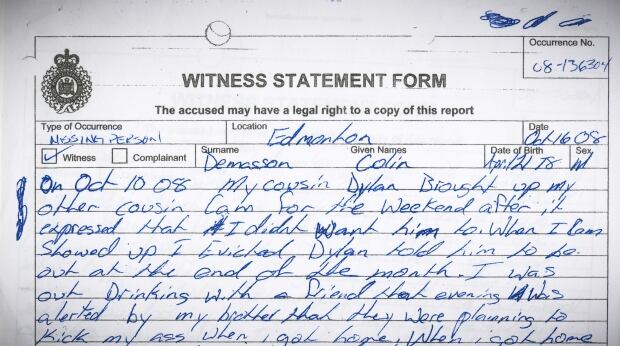 Occurrence No.
08-136304
WITNESS STATEMENT FORM
The accused may have a legal right to a copy of this report
Type of Occurrence Location Date
MISSING PERSON Edmonton Oct 16 08
Witness Complainant Surname Given Names Date of Birth Sex
Demasson Colin April 21 78 M
On Oct 10 08 My cousin Dylan Brought up my
other cousin Cam for the weekend after i
expressed that I didnt want him to. When Cam
Showed up I Evicted Dylan told him to be
out at the end of the month. I was
out Drinking with a friend that evening I was
alerted by my brother that they were planning to
Kick my ass when i got home, When i got home